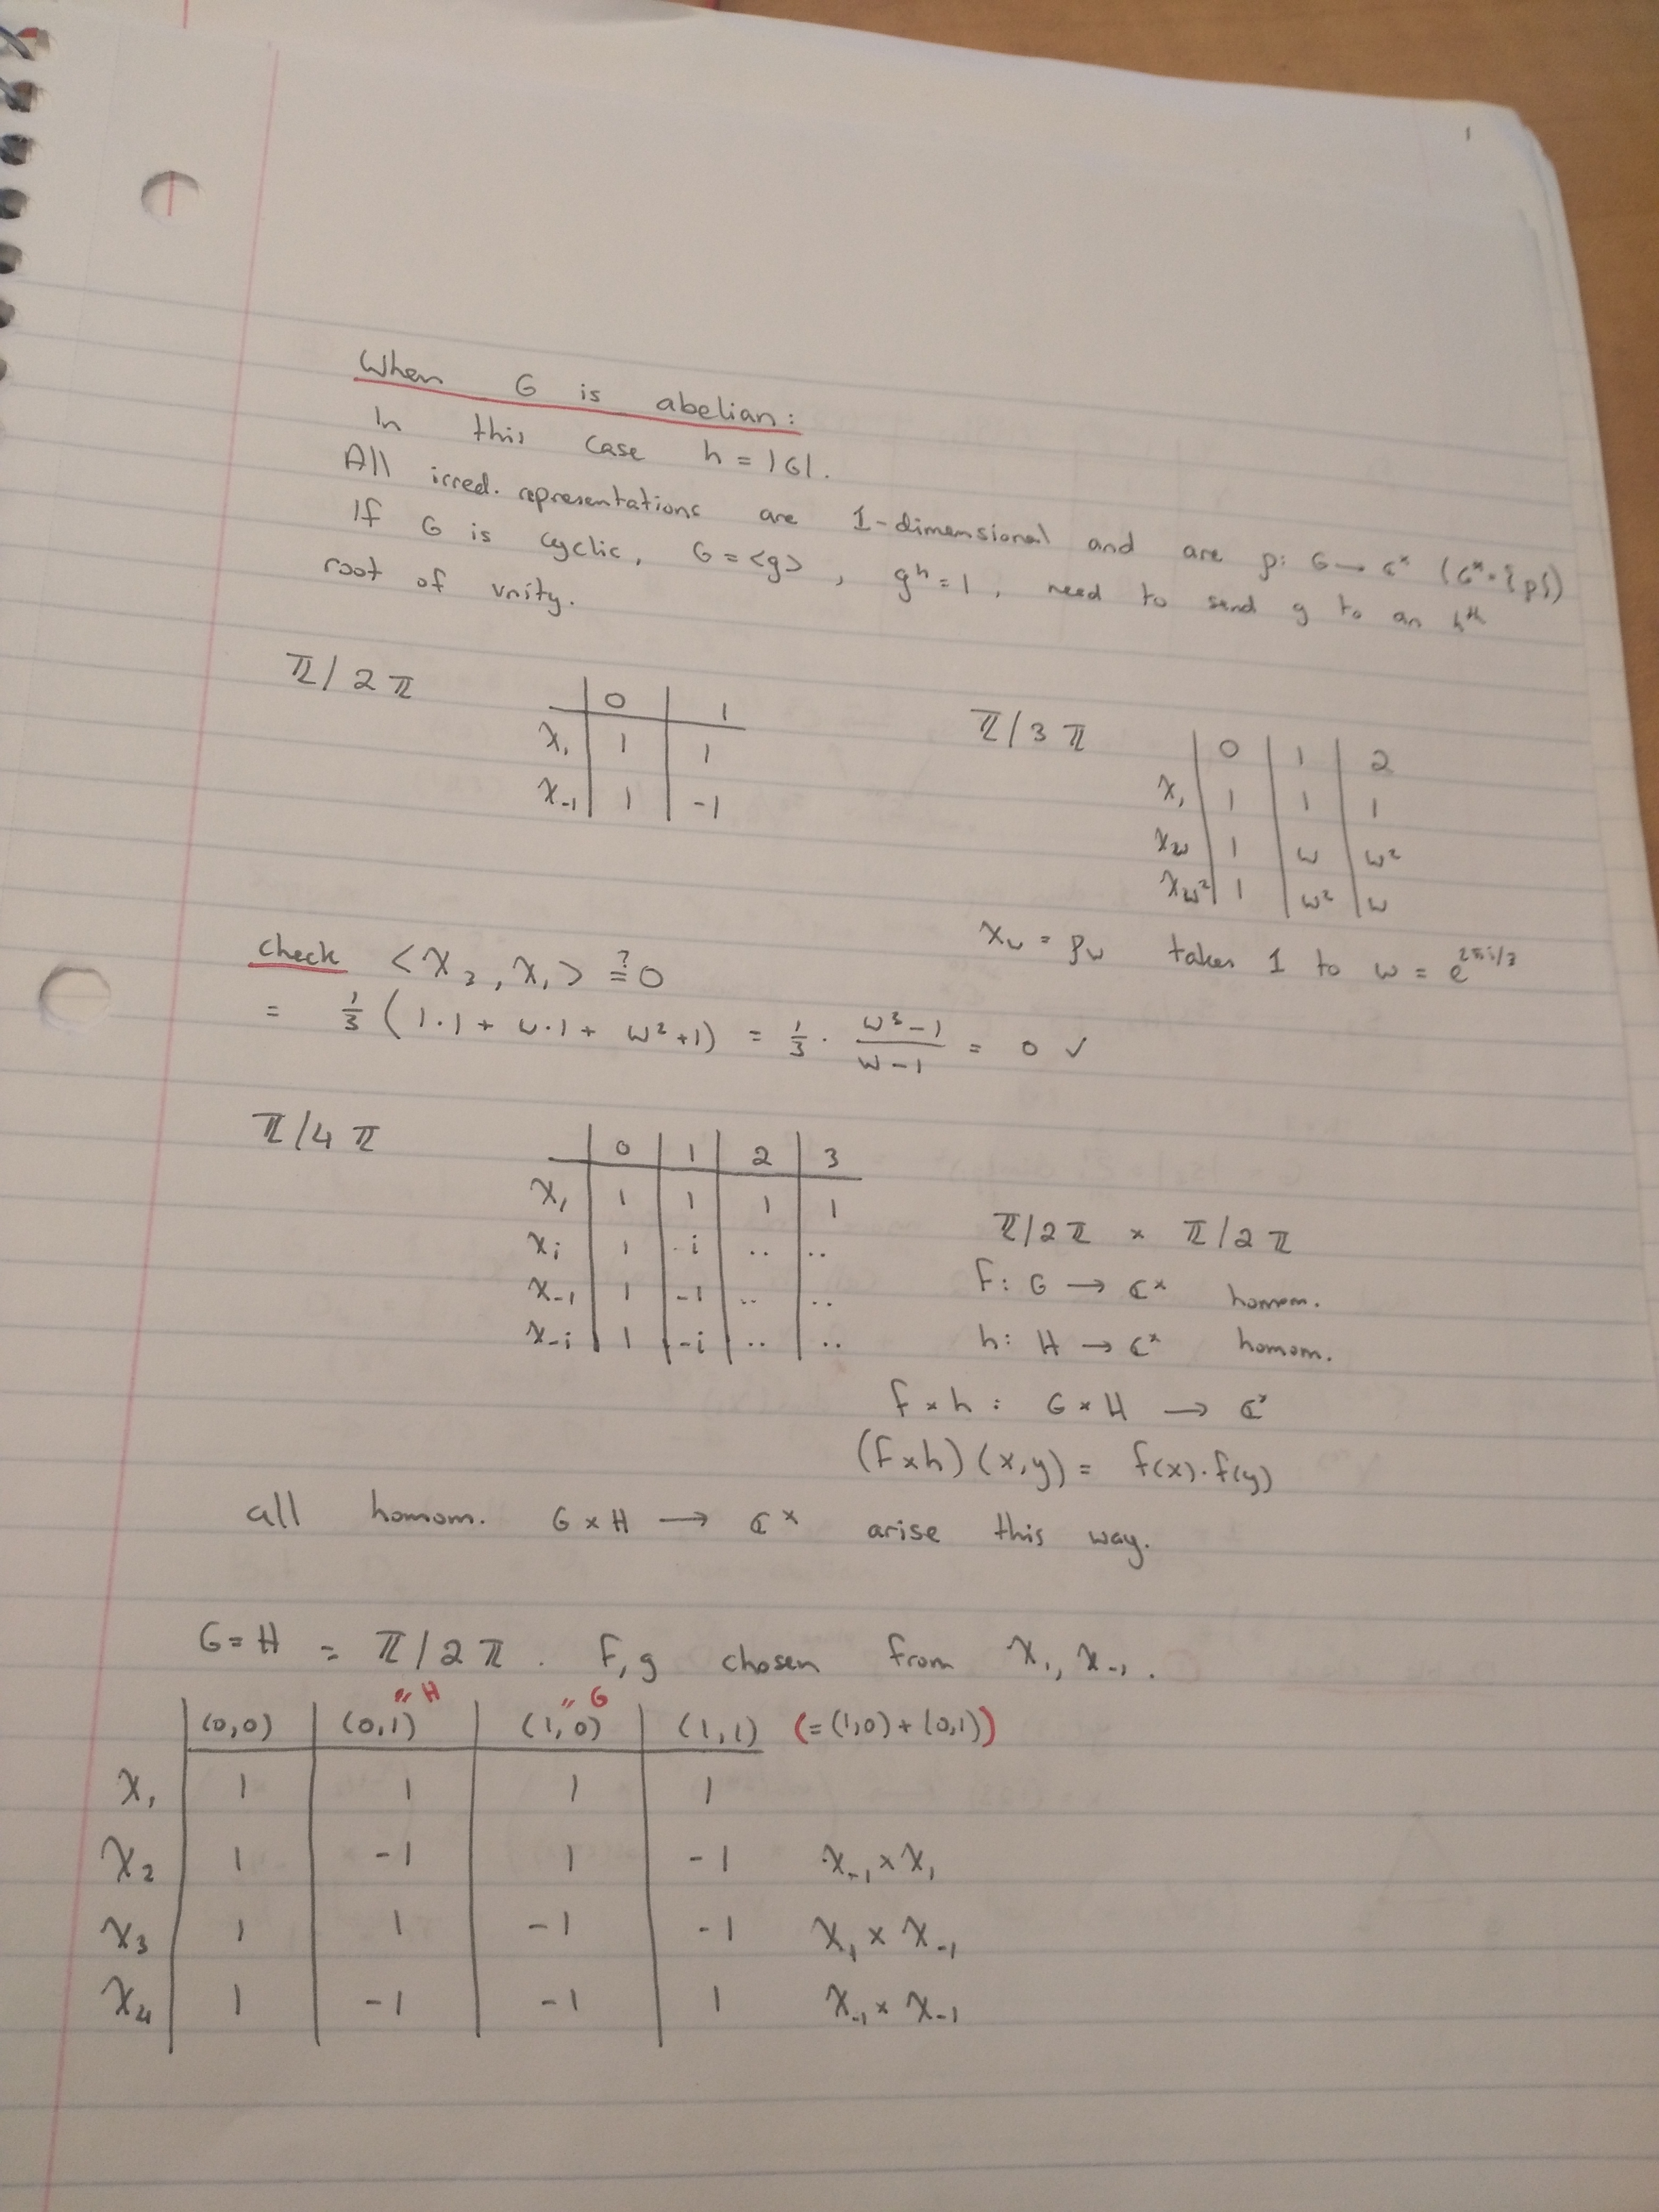 1
When G is abelian:
In this case h = |G|.
All irred. representations are 1-dimensional and are ρ: G → ℂˣ (G* = {ρ})
If G is cyclic, G = <g>, gʰ = 1, need to send g to an hᵗʰ
root of unity.
ℤ/2ℤ
0 1
χ₁ 1 1
χ₋₁ 1 -1
ℤ/3ℤ
0 1 2
χ₁ 1 1 1
χω 1 ω ω²
χω² 1 ω² ω
χω = ρω takes 1 to ω = e^{2πi/3}
check <χ₂, χ₁> ≟ 0
= 1/3 (1·1 + ω·1 + ω²+1) = 1/3 · (ω³-1)/(ω-1) = 0 ✓
ℤ/4ℤ
0 1 2 3
χ₁ 1 1 1 1
χᵢ 1 i .. ..
χ₋₁ 1 -1 .. ..
χ₋ᵢ 1 -i .. ..
ℤ/2ℤ × ℤ/2ℤ
f: G → ℂˣ homom.
h: H → ℂˣ homom.
f × h : G × H → ℂˣ
(f × h)(x,y) = f(x)·f(y)
all homom. G × H → ℂˣ arise this way.
G = H = ℤ/2ℤ. f, g chosen from χ₁, χ₋₁.
" H " G
(0,0) (0,1) (1,0) (1,1) (= (1,0) + (0,1))
χ₁ 1 1 1 1
χ₂ 1 -1 1 -1 χ₋₁ × χ₁
χ₃ 1 1 -1 -1 χ₁ × χ₋₁
χ₄ 1 -1 -1 1 χ₋₁ × χ₋₁